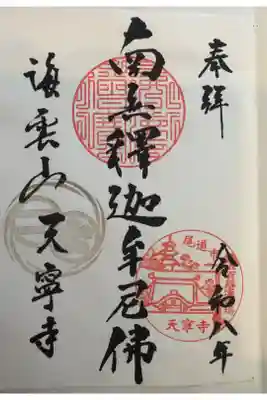 奉拝
令和八年
南無釋迦牟尼佛
海雲山 天寧寺
尾道
天寧寺